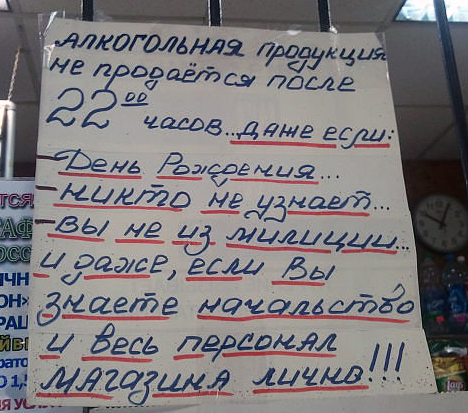 АЛКОГОЛЬНАЯ продукция
не продаётся после
22⁰⁰ часов.. даже если:
– День Рождения...
– никто не узнает...
– вы не из милиции...
и даже, если Вы
знаете начальство
и весь персонал
магазина лично!!!